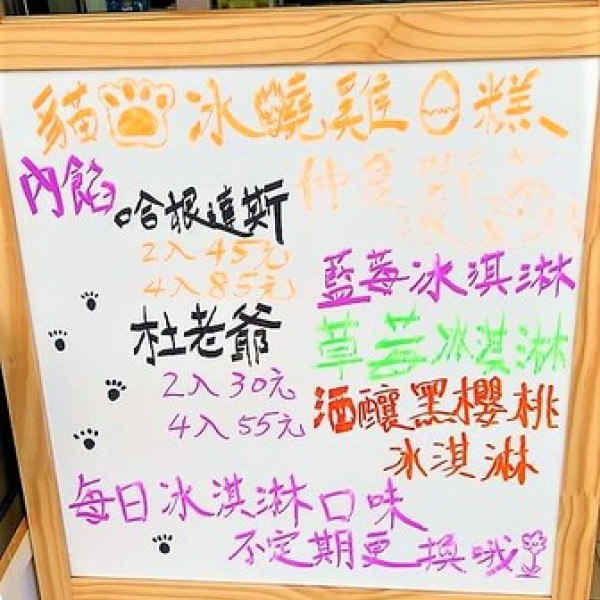 貓冰燒雞糕
內餡
哈根達斯
2入45元
4入85元
杜老爺
2入30元
4入55元
仲夏
藍莓冰淇淋
草莓冰淇淋
酒釀黑櫻桃
冰淇淋
每日冰淇淋口味
不定期更換哦